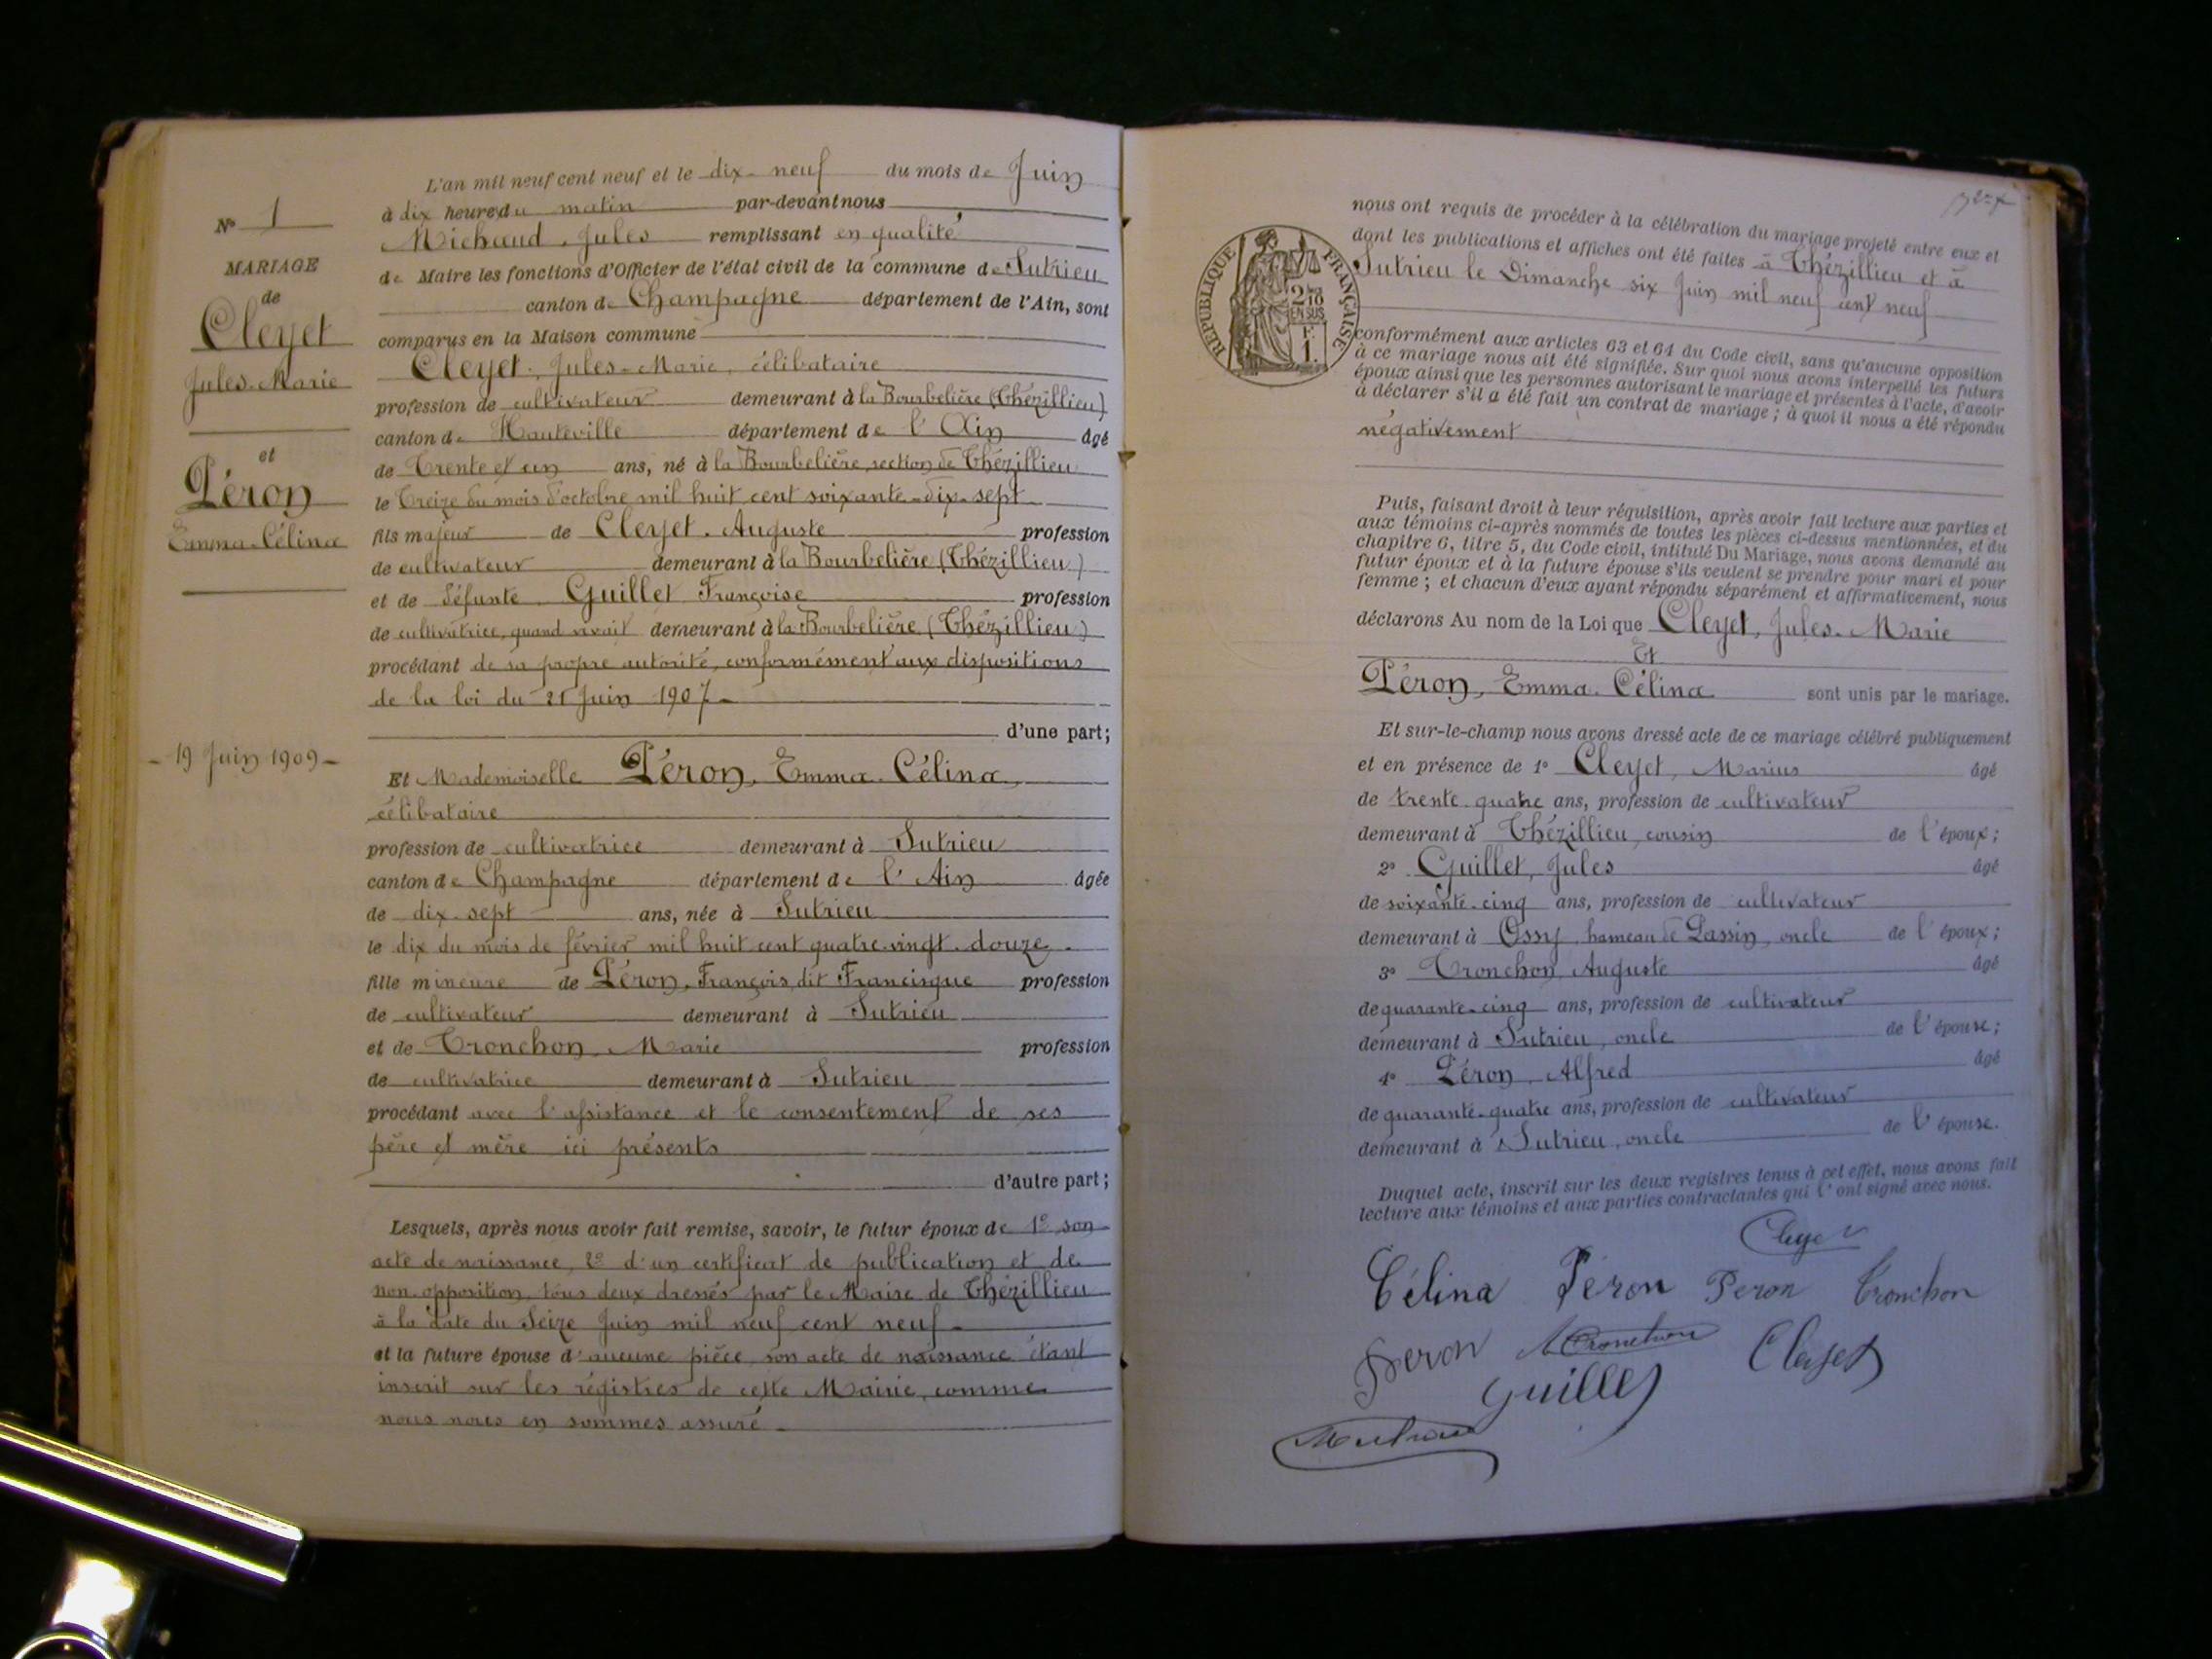 L'an mil neuf cent neuf et le dix-neuf du mois de Juin
à dix heure du matin par-devant nous
Michaud, Jules remplissant en qualité
de Maire les fonctions d'Officier de l'état civil de la commune de Sutrieu
canton de Champagne département de l'Ain, sont
comparus en la Maison commune
Cleyet, Jules-Marie, célibataire
profession de cultivateur demeurant à la Bourbelière (Thézillieu)
canton de Hauteville département de l'Ain âgé
de Trente et un ans, né à la Bourbelière, section de Thézillieu
le Treize du mois d'octobre mil huit cent soixante-dix-sept
fils majeur de Cleyet Auguste profession
de cultivateur demeurant à la Bourbelière (Thézillieu)
et de défunte Guillet Françoise profession
de cultivatrice, quand vivait demeurant à la Bourbelière (Thézillieu)
procédant de sa propre autorité, conformément aux dispositions
de la loi du 21 Juin 1907
d'une part;
Et Mademoiselle Péron, Emma-Célina,
célibataire
profession de cultivatrice demeurant à Sutrieu
canton de Champagne département de l'Ain âgée
de dix-sept ans, née à Sutrieu
le dix du mois de février mil huit cent quatre-vingt-douze
fille mineure de Péron, François, dit Francisque profession
de cultivateur demeurant à Sutrieu
et de Tronchon, Marie profession
de cultivatrice demeurant à Sutrieu
procédant avec l'assistance et le consentement de ses
père et mère ici présents
d'autre part;
Lesquels, après nous avoir fait remise, savoir, le futur époux de 1° son
acte de naissance, 2° d'un certificat de publication et de
non opposition, tous deux dressés par le Maire de Thézillieu
à la date du Seize Juin mil neuf cent neuf
et la future épouse d'aucune pièce, son acte de naissance étant
inscrit sur les régistres de cette Mairie, comme
nous nous en sommes assuré
N° 1
MARIAGE
de
Cleyet
Jules-Marie
et
Péron
Emma-Célina
19 Juin 1909
nous ont requis de procéder à la célébration du mariage projeté entre eux et
dont les publications et affiches ont été faites à Thézillieu et à
Sutrieu le Dimanche six Juin mil neuf cent neuf
RÉPUBLIQUE FRANÇAISE
2/10
EN SUS
F.
1.
conformément aux articles 63 et 64 du Code civil, sans qu'aucune opposition
à ce mariage nous ait été signifiée. Sur quoi nous avons interpellé les futurs
époux ainsi que les personnes autorisant le mariage et présentes à l'acte, d'avoir
à déclarer s'il a été fait un contrat de mariage; à quoi il nous a été répondu
négativement
Puis, faisant droit à leur réquisition, après avoir fait lecture aux parties et
aux témoins ci-après nommés de toutes les pièces ci-dessus mentionnées, et du
chapitre 6, titre 5, du Code civil, intitulé Du Mariage, nous avons demandé au
futur époux et à la future épouse s'ils veulent se prendre pour mari et pour
femme; et chacun d'eux ayant répondu séparément et affirmativement, nous
déclarons Au nom de la Loi que Cleyet, Jules-Marie
Et
Péron, Emma-Célina sont unis par le mariage.
Et sur-le-champ nous avons dressé acte de ce mariage célébré publiquement
et en présence de 1° Cleyet, Marius âgé
de trente-quatre ans, profession de cultivateur
demeurant à Thézillieu, cousin de l'époux;
2° Guillet, Jules âgé
de soixante-cinq ans, profession de cultivateur
demeurant à Ossy, hameau de Passin, oncle de l'époux;
3° Tronchon, Auguste âgé
de quarante-cinq ans, profession de cultivateur
demeurant à Sutrieu, oncle de l'épouse;
4° Péron, Alfred âgé
de quarante-quatre ans, profession de cultivateur
demeurant à Sutrieu, oncle de l'épouse.
Duquel acte, inscrit sur les deux registres tenus à cet effet, nous avons fait
lecture aux témoins et aux parties contractantes qui l'ont signé avec nous.
Cleyet
Célina Péron Peron Tronchon
Peron A Tronchon Cleyet
Guillet
Michaud